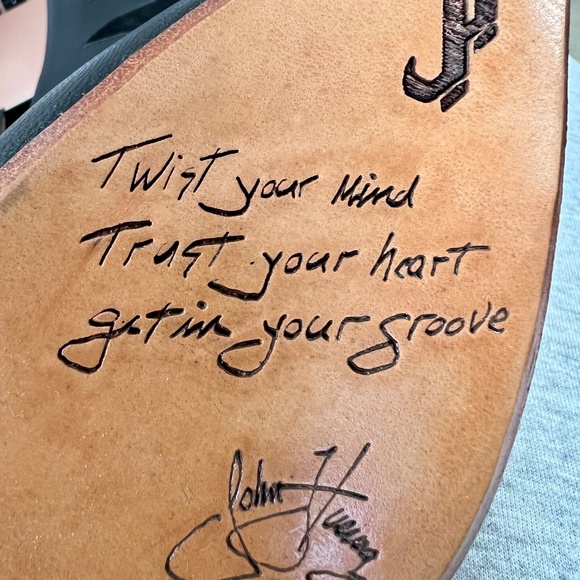 Twist your Mind
Trust your heart
get in your groove
John